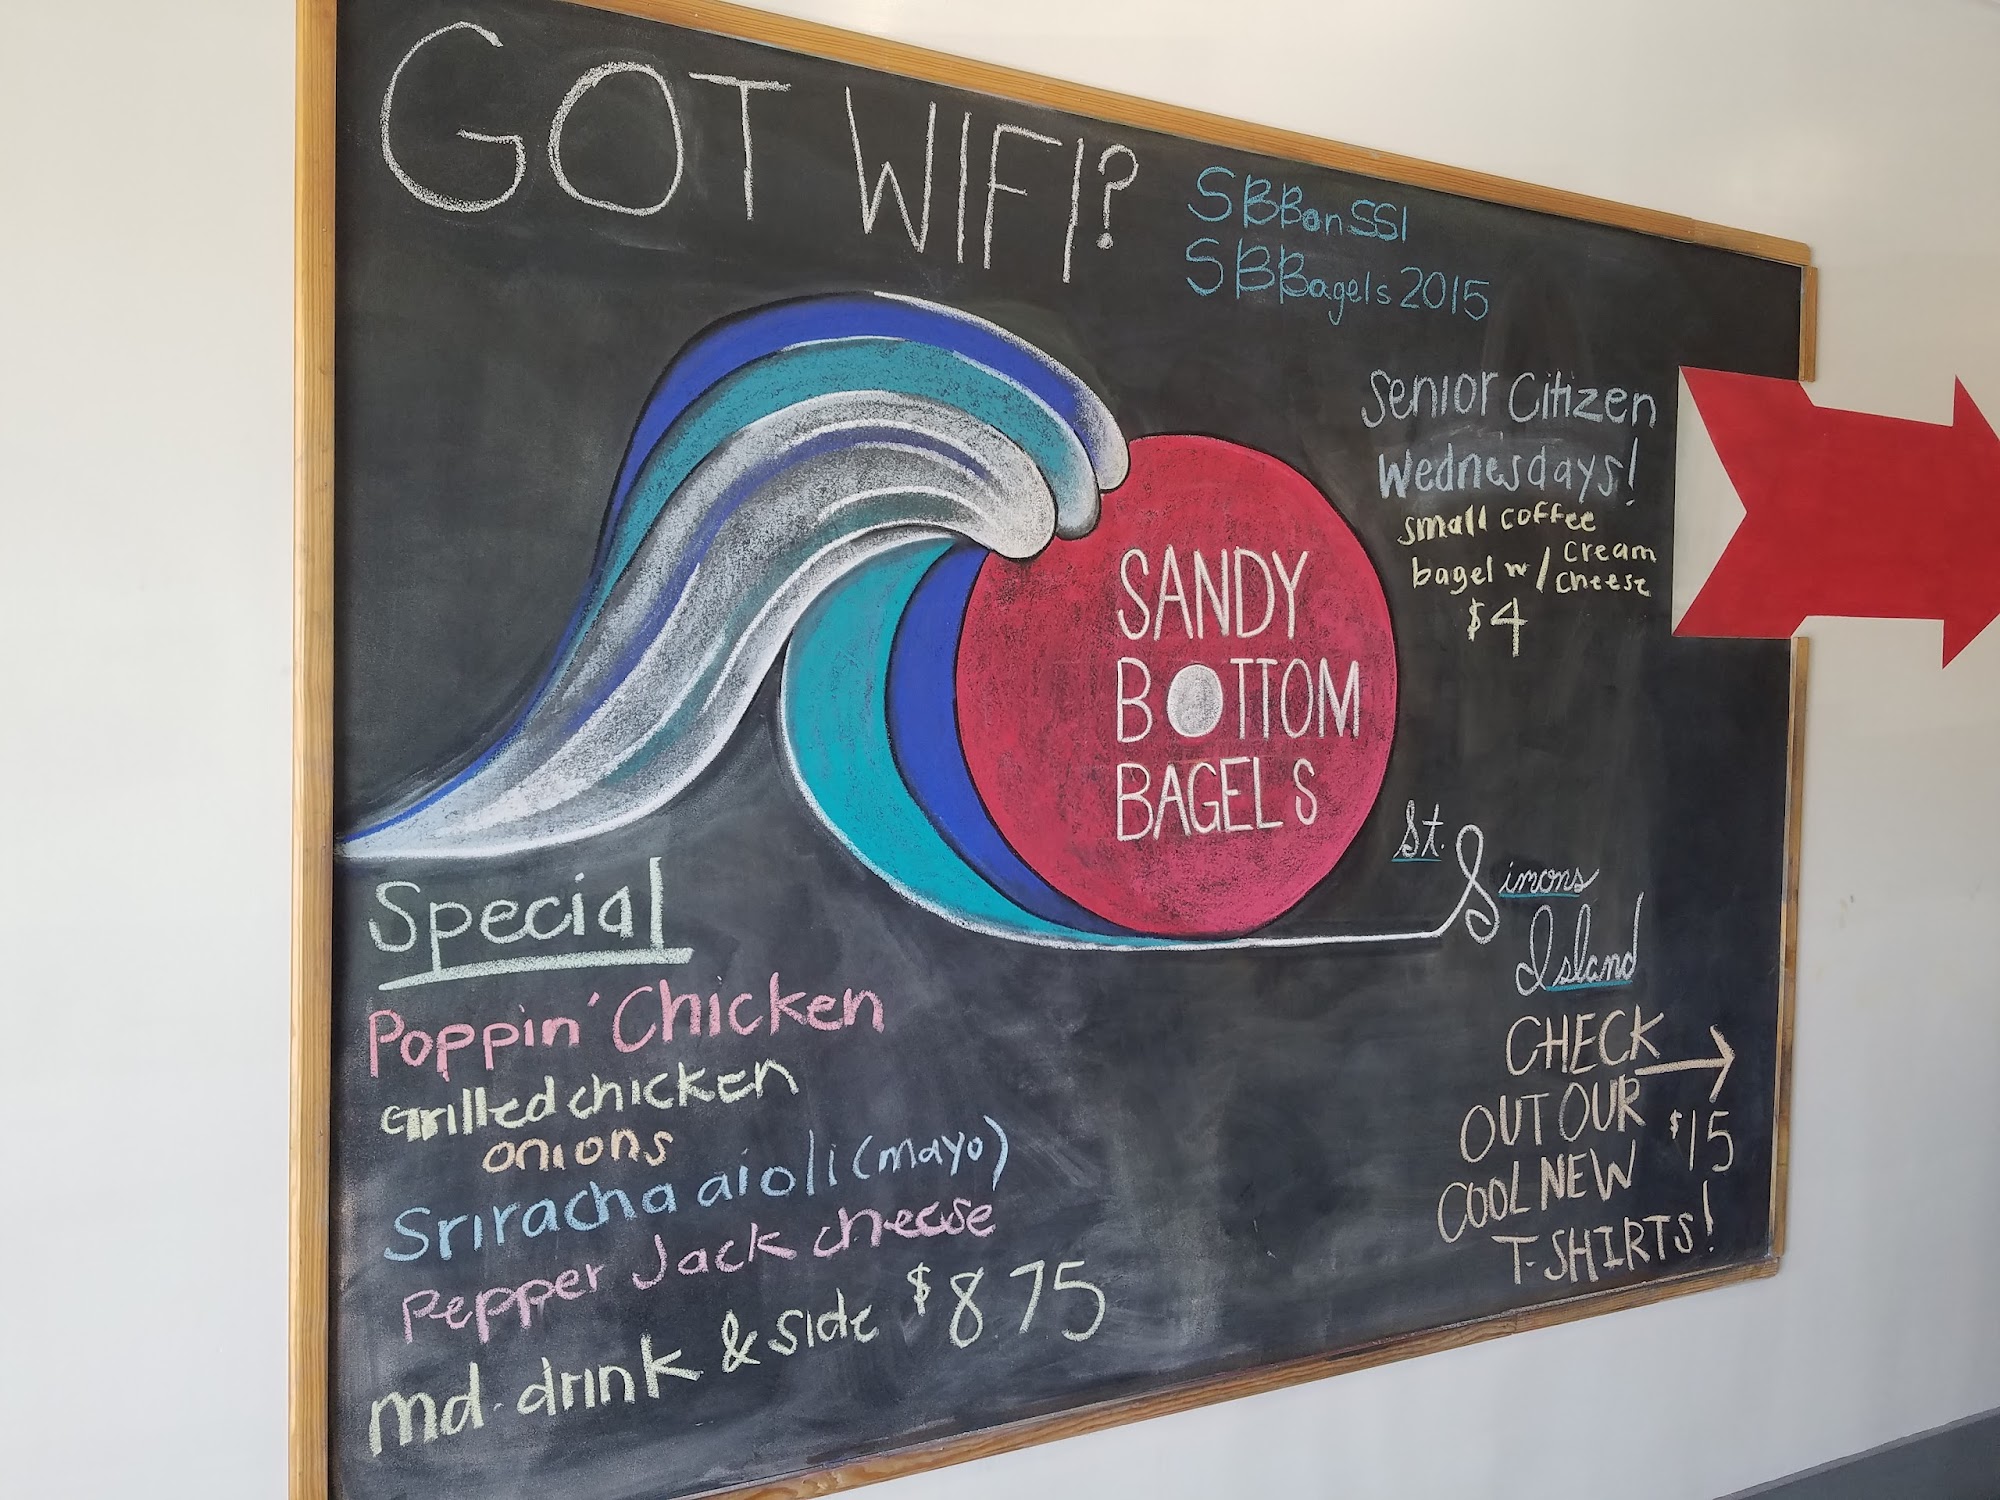 GOT WIFI?
SBBonSSI
SBBagels2015
Senior Citizen
Wednesdays!
small coffee
bagel w/ cream cheese
$4
SANDY
BOTTOM
BAGELS
St. Simons
Island
Special
Poppin' Chicken
Grilled chicken
onions
Sriracha aioli (mayo)
Pepper Jack cheese
md. drink & side $8 75
CHECK
OUT OUR
COOL NEW
T-SHIRTS!
$15